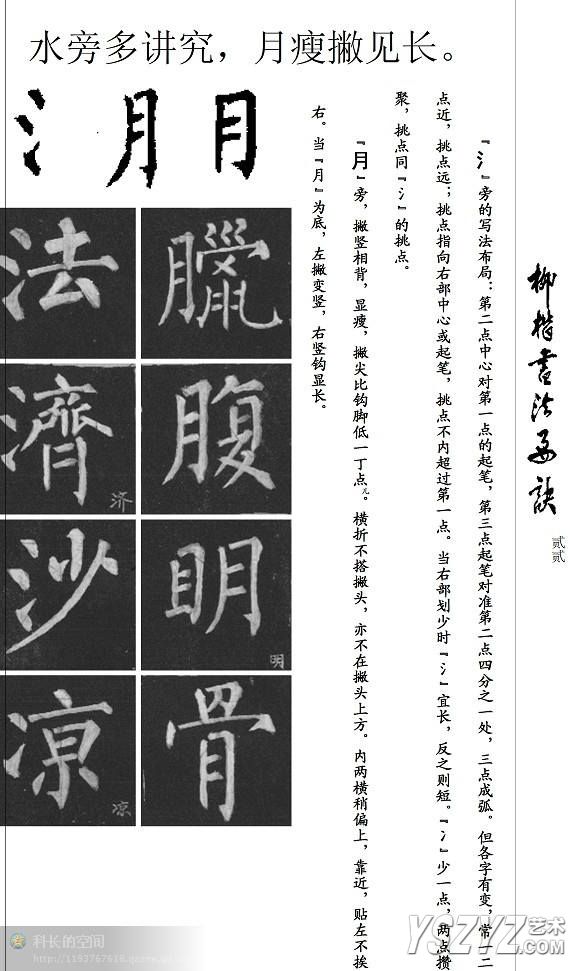 水旁多讲究，月瘦撇见长。
柳楷書法要訣
贰贰
『氵』旁的写法布局：第二点中心对第一点的起笔，第三点起笔对准第二点四分之一处，三点成弧。但各字有变，常一二
点近，挑点远；挑点指向右部中心或起笔，挑点不内超过第一点。当右部划少时『氵』宜长，反之则短。『冫』少一点，两点攒
聚，挑点同『氵』的挑点。
『月』旁，撇竖相背，显瘦，撇尖比钩脚低一丁点儿。横折不搭撇头，亦不在撇头上方。内两横稍偏上，靠近，贴左不挨
右。当『月』为底，左撇变竖，右竖钩显长。
氵月月
法 臘
濟 济 腹
沙 眀 明
凉 凉 骨
科长的空间
YSZYZ艺术